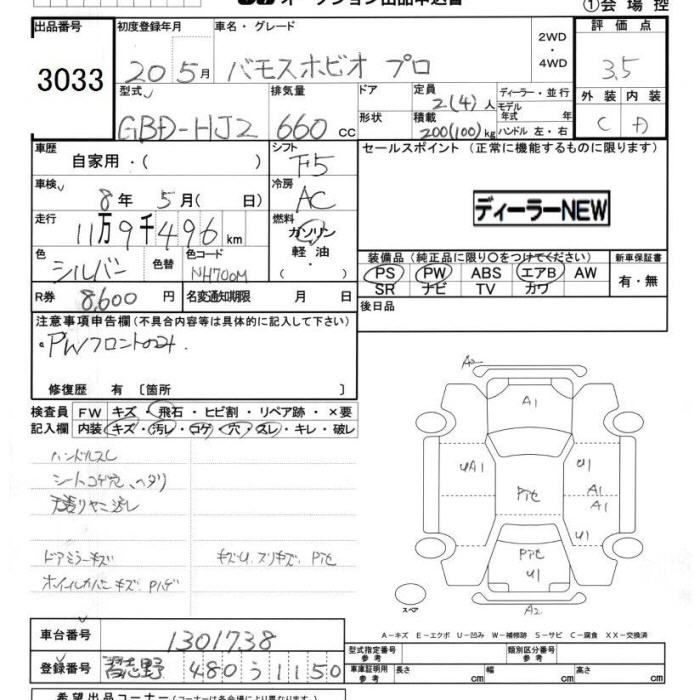 オークション出品申込書 ①会場控
出品番号 初度登録年月 車名・グレード 評価点
3033 20年5月 バモスホビオ プロ 2WD・4WD 3.5
型式 排気量 ドア 定員 2(4)人 ディーラー・並行 外装 内装
GBD-HJ2 660cc 形状 積載 200(100)kg モデル年式 年 ハンドル 左・右 C D
車歴 自家用・( ) シフト F5 セールスポイント (正常に機能するものに限ります)
車検 8年5月(日) 冷房 AC
ディーラーNEW
走行 11万9千496km 燃料 ガソリン 軽油・( )
色 シルバー 色替 色コード NH700M
装備品 (純正品に限り○をつけてください) 新車保証書
PS PW ABS エアB AW 有・無
SR ナビ TV カワ
R券 8,600円 名変通知期限 月 日 後日品
注意事項申告欄 (不具合内容等は具体的に記入して下さい)
・PWフロントのみ.
修復歴 有 [箇所 ]
検査員 FW キズ・飛石・ヒビ割・リペア跡・×要
記入欄 内装 キズ・汚レ・コゲ・穴・スレ・キレ・破レ
ハンドルスレ
シートコゲ穴、ヘタリ
天張りヤニ汚レ
ドアミラーキズ キズU、スリキズ、Pアセ
ホイールカバーキズ、Pハゲ
A2
A1
UA1 U1
Pアセ A1
A1
U1
Pアセ
U1
スペア A2
A-キズ E-エクボ U-凹み W-補修跡 S-サビ C-腐食 XX-交換済
車台番号 1301738
型式指定番号 参考 類別区分番号 参考
登録番号 習志野 480 う 1150
車庫証明用 参考 長さ cm 幅 cm 高さ cm
希望出品コーナー (コーナーは各会場により異なります)